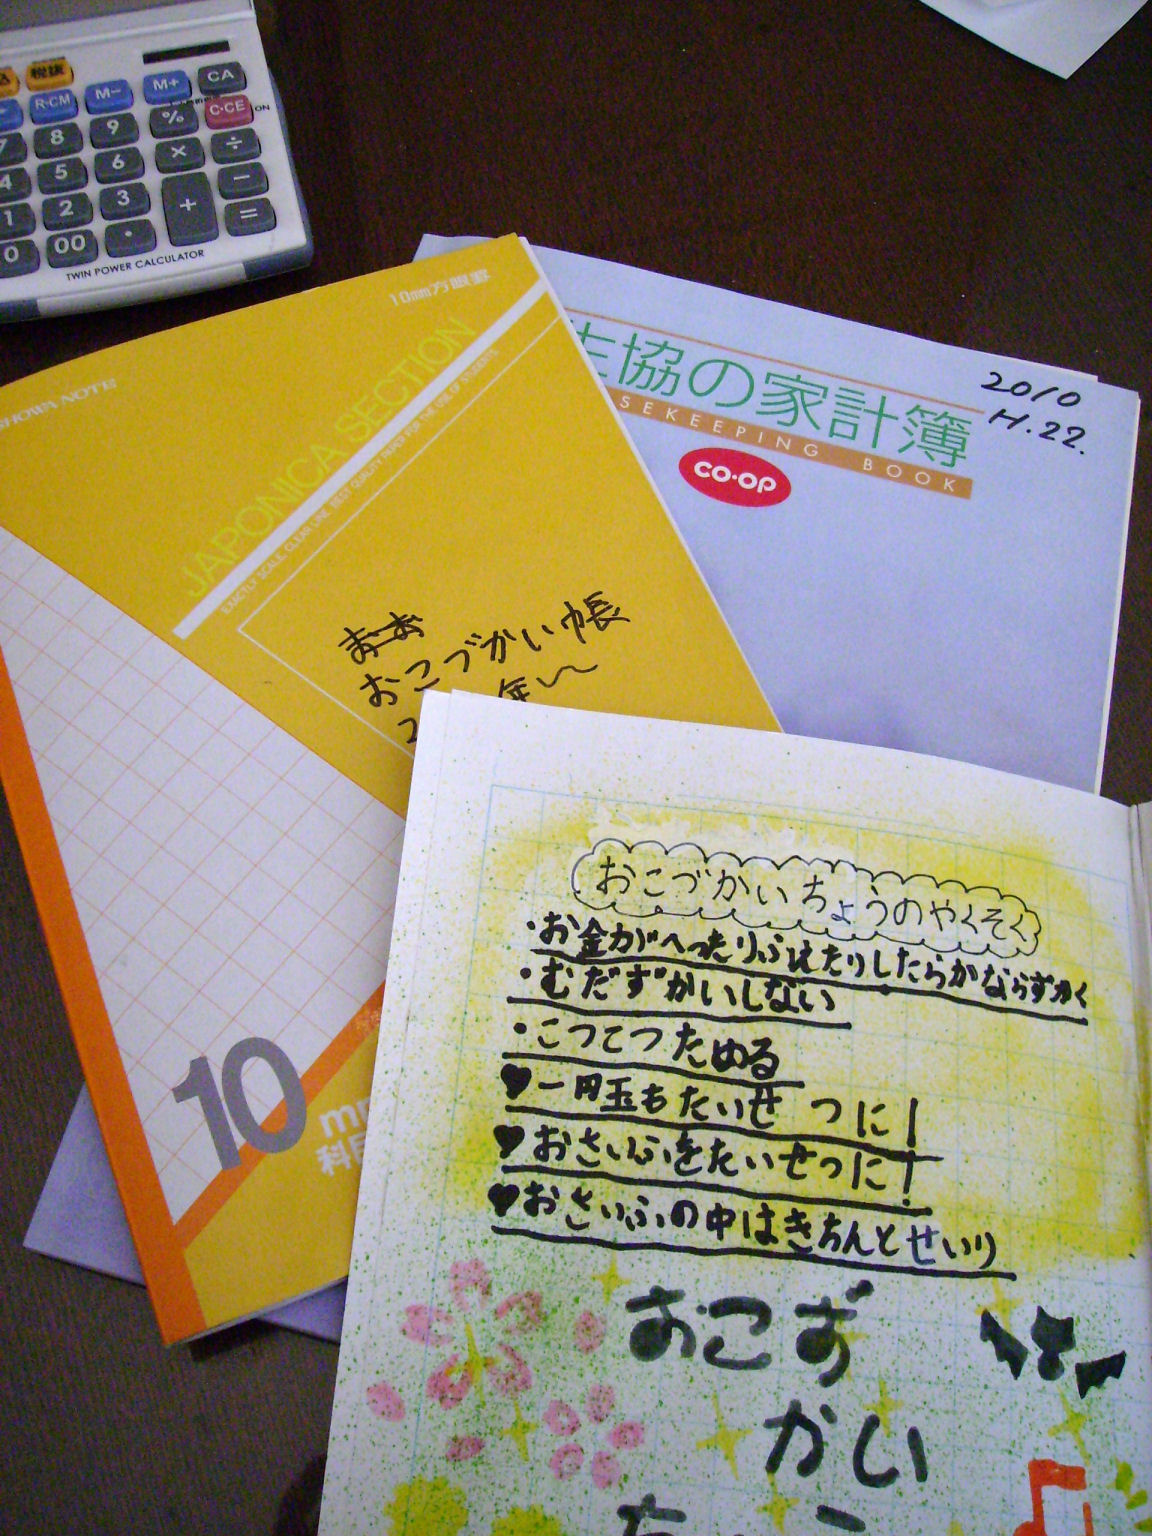 税抜
R·CM
M−
M+
CA
7
8
9
%
C·CE
ON
4
5
6
×
÷
1
2
3
+
−
0
00
·
=
TWIN POWER CALCULATOR
生協の家計簿
SEKEEPING BOOK
CO·OP
2010
H.22.
SHOWA NOTE
10mm方眼罫
JAPONICA SECTION
EXACTLY SCALE, CLEAR LINE, BEST QUALITY PAPER FOR THE USE OF STUDENTS
おこづかい帳
2 年〜
10
mm
科目
おこづかいちょうのやくそく
・お金がへったりふえたりしたらかならずかく
・むだずかいしない
・こつこつためる
♥一円玉もたいせつに!
♥おさいふをたいせつに!
♥おさいふの中はきちんとせいり
おこず
かい
ちょう